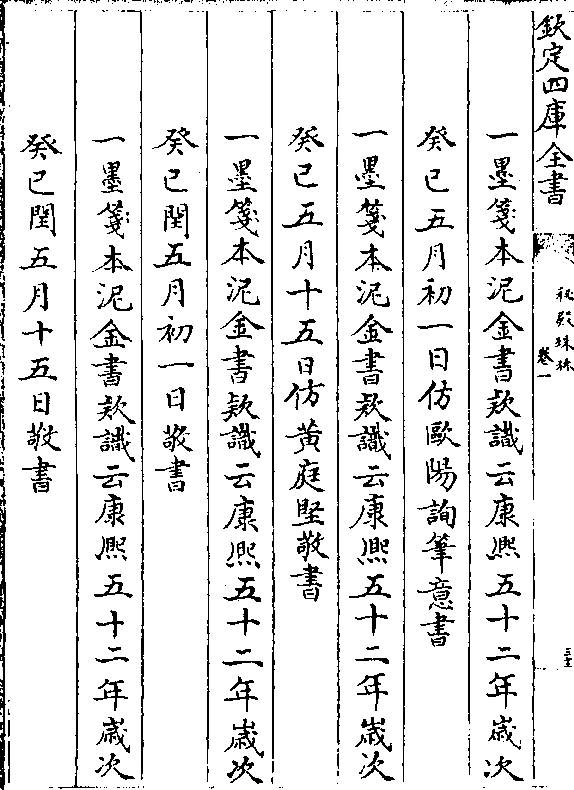 欽定四庫全書
秘殿珠林
卷一
一墨箋本泥金書款識云康熙五十二年歲次
癸巳五月初一日仿歐陽詢筆意書
一墨箋本泥金書款識云康熙五十二年歲次
癸巳五月十五日仿黃庭堅敬書
一墨箋本泥金書款識云康熙五十二年歲次
癸巳閏五月初一日敬書
一墨箋本泥金書款識云康熙五十二年歲次
癸巳閏五月十五日敬書